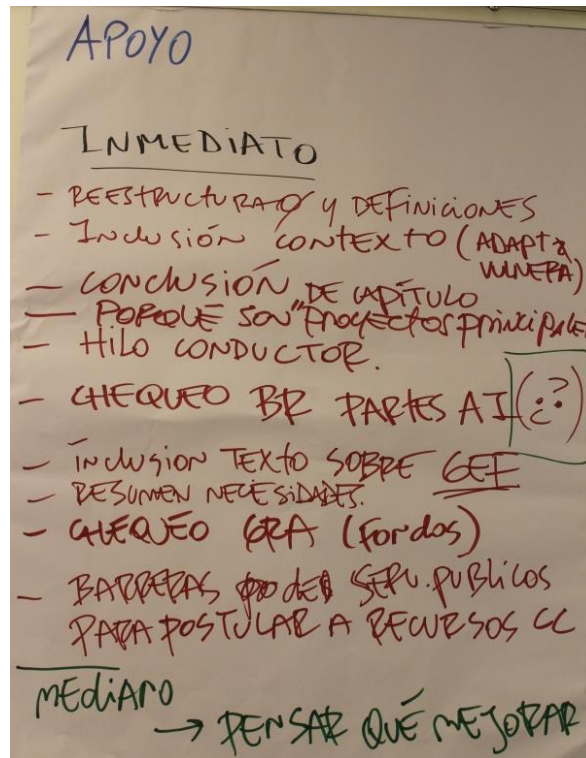 APOYO
INMEDIATO
- REESTRUCTURAR Y DEFINICIONES
- INCLUSIÓN CONTEXTO (ADAPT &
VULNERA)
- CONCLUSIÓN DE CAPÍTULO
- PORQUÉ SON "PROYECTOS PRINCIPALES
- HILO CONDUCTOR.
- CHEQUEO BR PARTES AI (¿?)
- INCLUSION TEXTO SOBRE GEF
- RESUMEN NECESIDADES.
- CHEQUEO GRA (Fondos)
- BARRERAS de SERV. PUBLICOS
PARA POSTULAR A RECURSOS CC
MEDIANO
→ PENSAR QUÉ MEJORAR